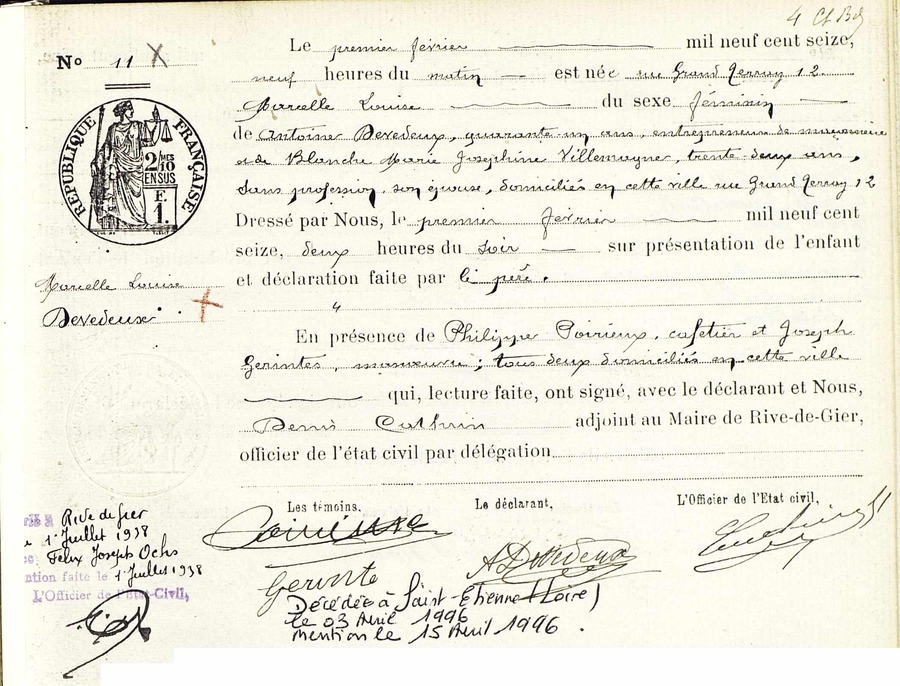 4
No 11 X
Le premier février mil neuf cent seize,
neuf heures du matin est née rue Grand Gerruy 12
Marcelle Louise du sexe féminin
de Antoine Devedeux, quarante un ans, entrepreneur de maçonnerie
et de Blanche Marie Joséphine Villemagner, trente deux ans,
Sans profession, son épouse, domiciliés en cette ville rue Grand Gerruy 12
Dressé par Nous, le premier février mil neuf cent
seize, deux heures du soir sur présentation de l'enfant
et déclaration faite par le père.
"
En présence de Philippe Poirieux, cafetier et Joseph
Gerintes, manœuvre ; tous deux domiciliés en cette ville
qui, lecture faite, ont signé, avec le déclarant et Nous,
Denis adjoint au Maire de Rive-de-Gier,
officier de l'état civil par délégation
RÉPUBLIQUE FRANÇAISE
2 MES
60
EN SUS
F.
1.
Marcelle Louise
Devedeux
Les témoins, Le déclarant, L'Officier de l'Etat civil,
Rive de Gier
1er Juillet 1938
Félix Joseph Ochs
ntion faite le 1er Juillet 1938
L'Officier de l'Etat-Civil,
Gerinte
Décédée à Saint-Etienne (Loire)
le 03 Avril 1996
mention le 15 Avril 1996.